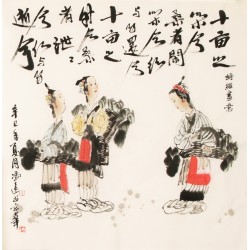 十亩之
间兮
桑者闲
闲兮行
与子还兮
十亩之
外兮桑
者泄泄
兮行与子
逝兮
诗经写意
辛巳年夏月